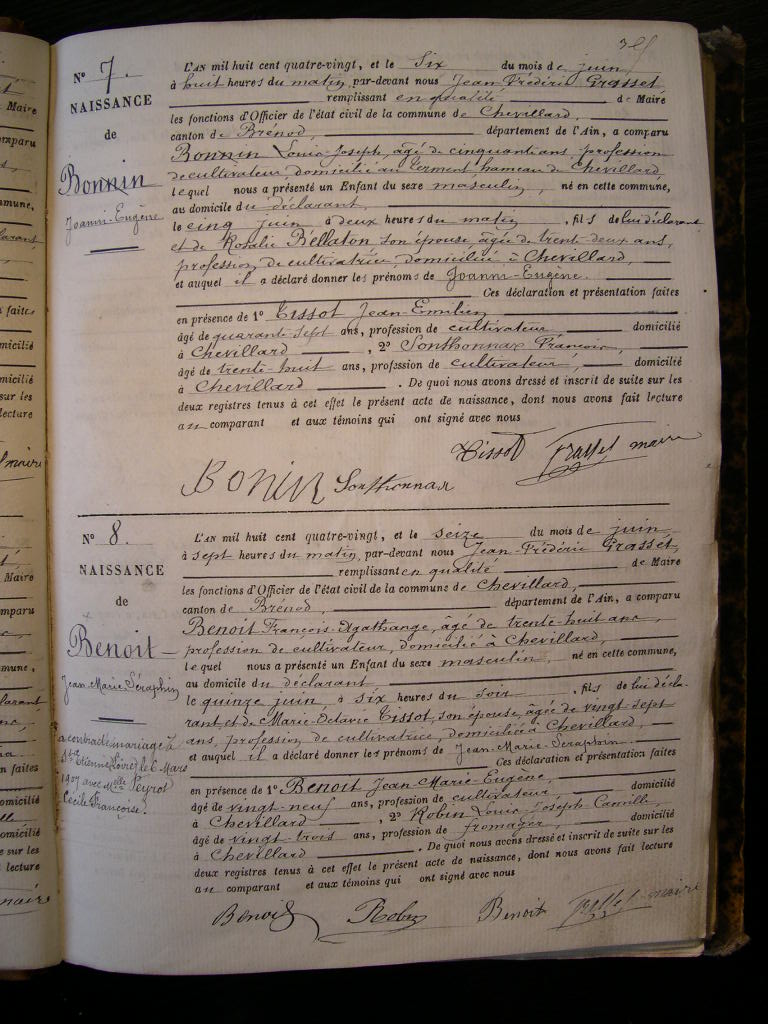 Nº 7.
NAISSANCE
de
Bonnin
Joanni-Eugène
L'AN mil huit cent quatre-vingt, et le Six du mois de juin
à huit heures du matin, par-devant nous Jean-Frédéric Grasset,
remplissant en qualité de Maire
les fonctions d'Officier de l'état civil de la commune de Chevillard,
canton de Brénod, département de l'Ain, a comparu
Bonnin Louis-Joseph, âgé de cinquante ans, profession
de cultivateur, domicilié au Terment, hameau de Chevillard,
lequel nous a présenté un Enfant du sexe masculin, né en cette commune,
au domicile du déclarant
le cinq juin à deux heures du matin, fils de lui déclarant
et de Rosalie Bellaton son épouse, âgée de trente-deux ans,
profession de cultivatrice, domiciliée à Chevillard,
et auquel il a déclaré donner les prénoms de Joanni-Eugène.
Ces déclaration et présentation faites
en présence de 1º Tissot Jean-Emilien
âgé de quarante-sept ans, profession de cultivateur domicilié
à Chevillard, 2º Sonthonnax François,
âgé de trente-huit ans, profession de cultivateur, domicilié
à Chevillard. De quoi nous avons dressé et inscrit de suite sur les
deux registres tenus à cet effet le présent acte de naissance, dont nous avons fait lecture
au comparant et aux témoins qui ont signé avec nous
Tissot Grasset maire
Bonin Sonthonnax
Nº 8.
NAISSANCE
de
Benoit
Jean-Marie-Séraphin
a contracté mariage à
St Etienne (Loire) le 6 Mars
1907 avec Melle Peyrot
Cécile Françoise.
L'AN mil huit cent quatre-vingt, et le seize du mois de juin,
à sept heures du matin, par-devant nous Jean-Frédéric Grasset,
remplissant en qualité de Maire
les fonctions d'Officier de l'état civil de la commune de Chevillard,
canton de Brénod, département de l'Ain, a comparu
Benoit François-Agathange, âgé de trente-huit ans,
profession de cultivateur, domicilié à Chevillard,
lequel nous a présenté un Enfant du sexe masculin, né en cette commune,
au domicile du déclarant
le quinze juin, à six heures du soir, fils de lui décla-
rant, et de Marie-Octavie Tissot, son épouse, âgée de vingt-sept
ans, profession de cultivatrice, domiciliée à Chevillard,
et auquel il a déclaré donner les prénoms de Jean-Marie-Séraphin
Ces déclaration et présentation faites
en présence de 1º Benoit Jean-Marie-Eugène,
âgé de vingt-neuf ans, profession de cultivateur, domicilié
à Chevillard, 2º Robin Louis-Joseph-Camille,
âgé de vingt-trois ans, profession de fromager, domicilié
à Chevillard. De quoi nous avons dressé et inscrit de suite sur les
deux registres tenus à cet effet le présent acte de naissance, dont nous avons fait lecture
au comparant et aux témoins qui ont signé avec nous
Benoit Robin Benoit Grasset maire